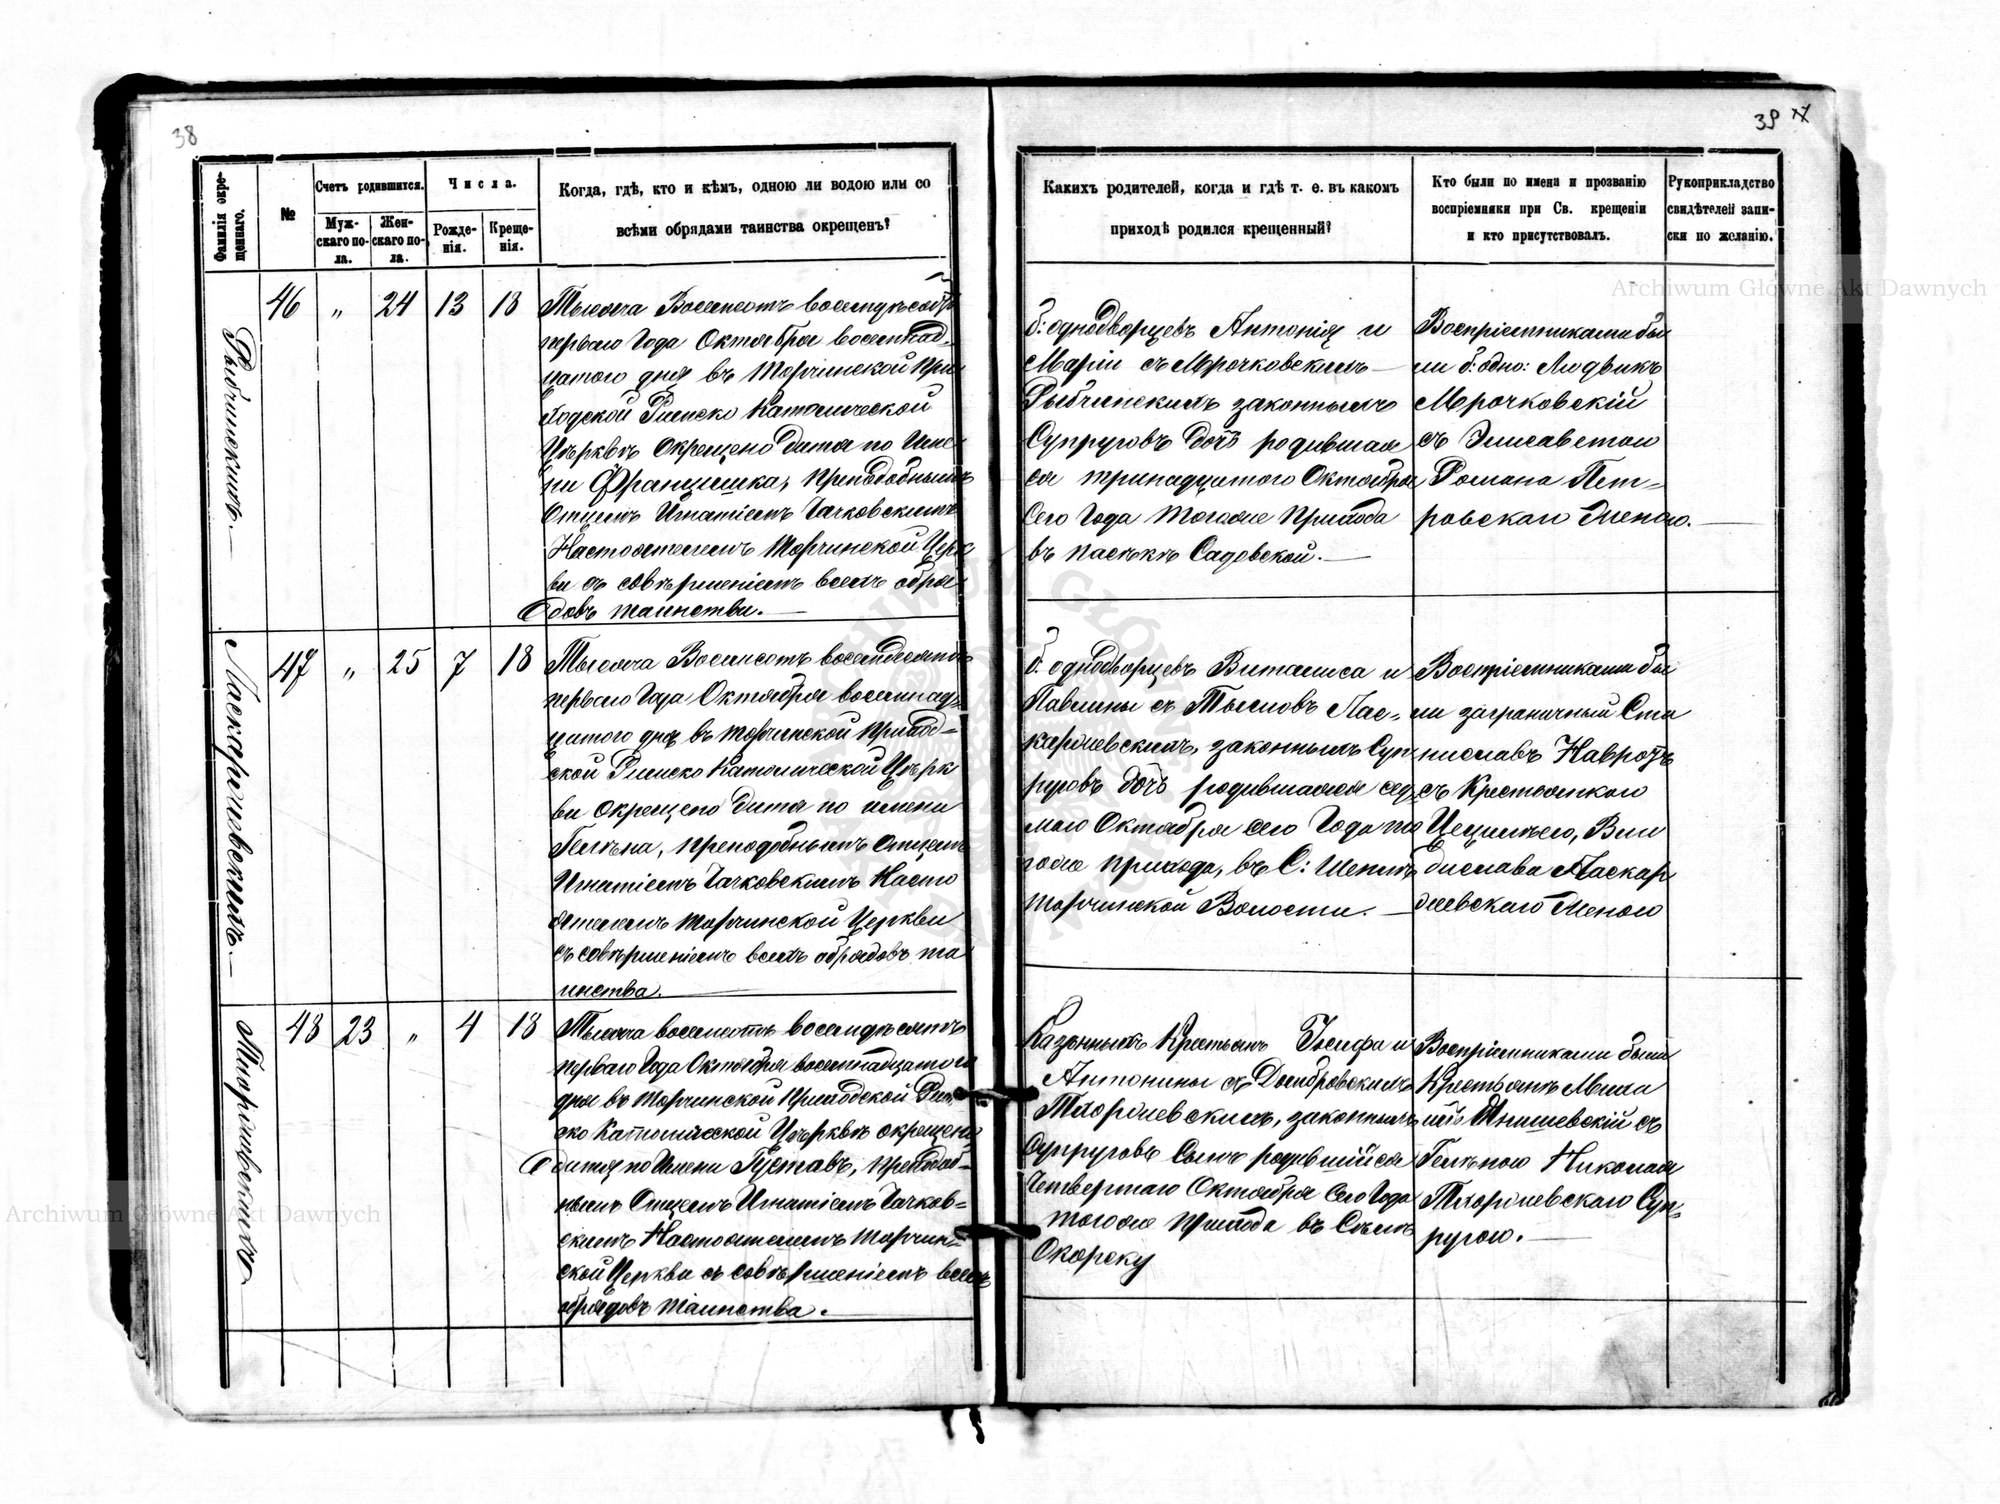 38
Фамилія окре-
щеннаго.
№
Счетъ родившихся.
Муж-
скаго по-
ла.
Жен-
скаго по-
ла.
Числа.
Рожде-
нія.
Креще-
нія.
Когда, гдѣ, кто и кѣмъ, одною ли водою или со
всѣми обрядами таинства окрещенъ?
Рыбчинскихъ.
46 „ 24 13 18
Тысяча Восемсотъ восемдѣсятъ
перваго Года Октября восемнад-
цатого дня въ Торчинской При-
ходской Римско Католической
Цѣрквѣ Окрещено Дитя по Име-
ни Францишка, Преподобнымъ
Отцемъ Игнатіемъ Гачковскимъ
Настоятелемъ Торчинской Церк
ви съ совѣршеніемъ всехъ обря-
довъ таинства.
Ласкаржевскихъ.
47 „ 25 7 18
Тысяча Восемсотъ восемдесятъ
перваго Года Октября восемнад-
цатого дня въ Торчинской Приход-
ской Римско Католической Цѣрк
ви Окрещено Дитя по имени
Гелѣна, Преподобнымъ Отцемъ
Игнатіемъ Гачковскимъ Насто
ятелемъ Торчинской Церкви
съ совѣршеніемъ всехъ обрядовъ та
инства.
48 23 „ 4 18
Тысяча восемсотъ восемдѣсятъ
перваго Года Октября восемнадцатого
дня въ Торчинской Приходской Рим-
ско Католической Цѣрквѣ окрещено
дитя по Имени Густавъ, Преподоб-
нымъ Отцемъ Игнатіемъ Гачков-
скимъ Настоятелемъ Торчин-
ской Церкви съ совѣршеніемъ всехъ
обрядовъ Таинства.
39
Какихъ родителей, когда и гдѣ т. е. въ какомъ
приходѣ родился крещенный?
Кто были по имени и прозванію
воспріемники при Св. крещеніи
и кто присутствовалъ.
Рукоприкладство
свидѣтелей запи-
ски по желанію.
б: однодворцевъ Антонія и
Маріи съ Мрочковскихъ
Рыбчинскихъ законныхъ
Супруговъ дочъ родившая
ся тринадцатого Октября
Сего Года тогоже Прихода
въ пасѣкѣ Садовской.
Воспріемниками бы
ли б: одно: Людвикъ
Мрочковскій
съ Элисаветою
Романа Пет-
ровскаго Женою.
б. однодворцевъ Виталиса и
Павлины съ Тысловъ Лас-
каржевскихъ, законныхъ Суп-
руговъ дочъ родившаяся сед
маго Октября сего Года то
гоже прихода, въ С: Шепнѣ
Торчинской Волости.
Воспріемниками бы
ли заграничный Ста
ниславъ Навротъ
съ Крестьянкою
Цецилѣею, Вла
дислава Ласкар
жевскаго Женою
Казѣнныхъ Крестьянъ Іосифа и
Антонины съ Домбровскихъ
законныхъ
Супруговъ Сынъ родившійся
Четвертаго Октября Сего Года
тогоже Прихода въ Сѣлѣ
Окорску
Воспріемниками были
Крестьянъ Миха
илъ Янишевскій съ
Гелѣною Николая
Суп-
ругою.
Archiwum Główne Akt Dawnych
Archiwum Główne Akt Dawnych